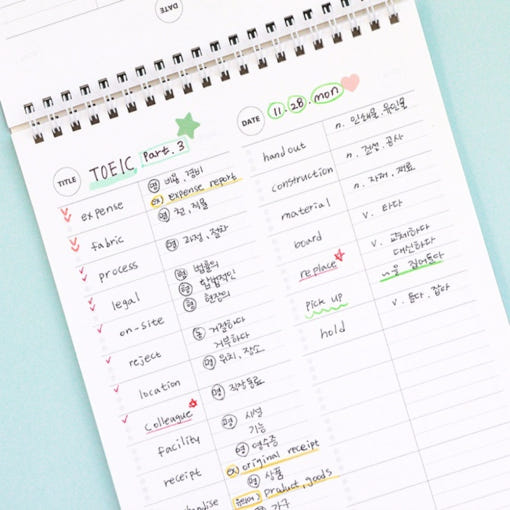 DATE
TITLE
TOEIC Part.3
DATE
11.28.mon
expense
명 비용, 경비
ex) expense report
fabric
명 천, 직물
process
명 과정, 절차
legal
형 법률의
형 합법적인
on-site
형 현장의
reject
동 거절하다
거부하다
location
명 위치, 장소
colleague
명 직장동료
facility
명 시설
기능
receipt
명 영수증
ex) original receipt
명 상품
product, goods
가구
handout
n. 인쇄물, 유인물
construction
n. 건설, 공사
material
n. 자재, 재료
board
v. 타다
replace
v. 교체하다
대신하다
pick up
집어들다
hold
v. 들다, 잡아